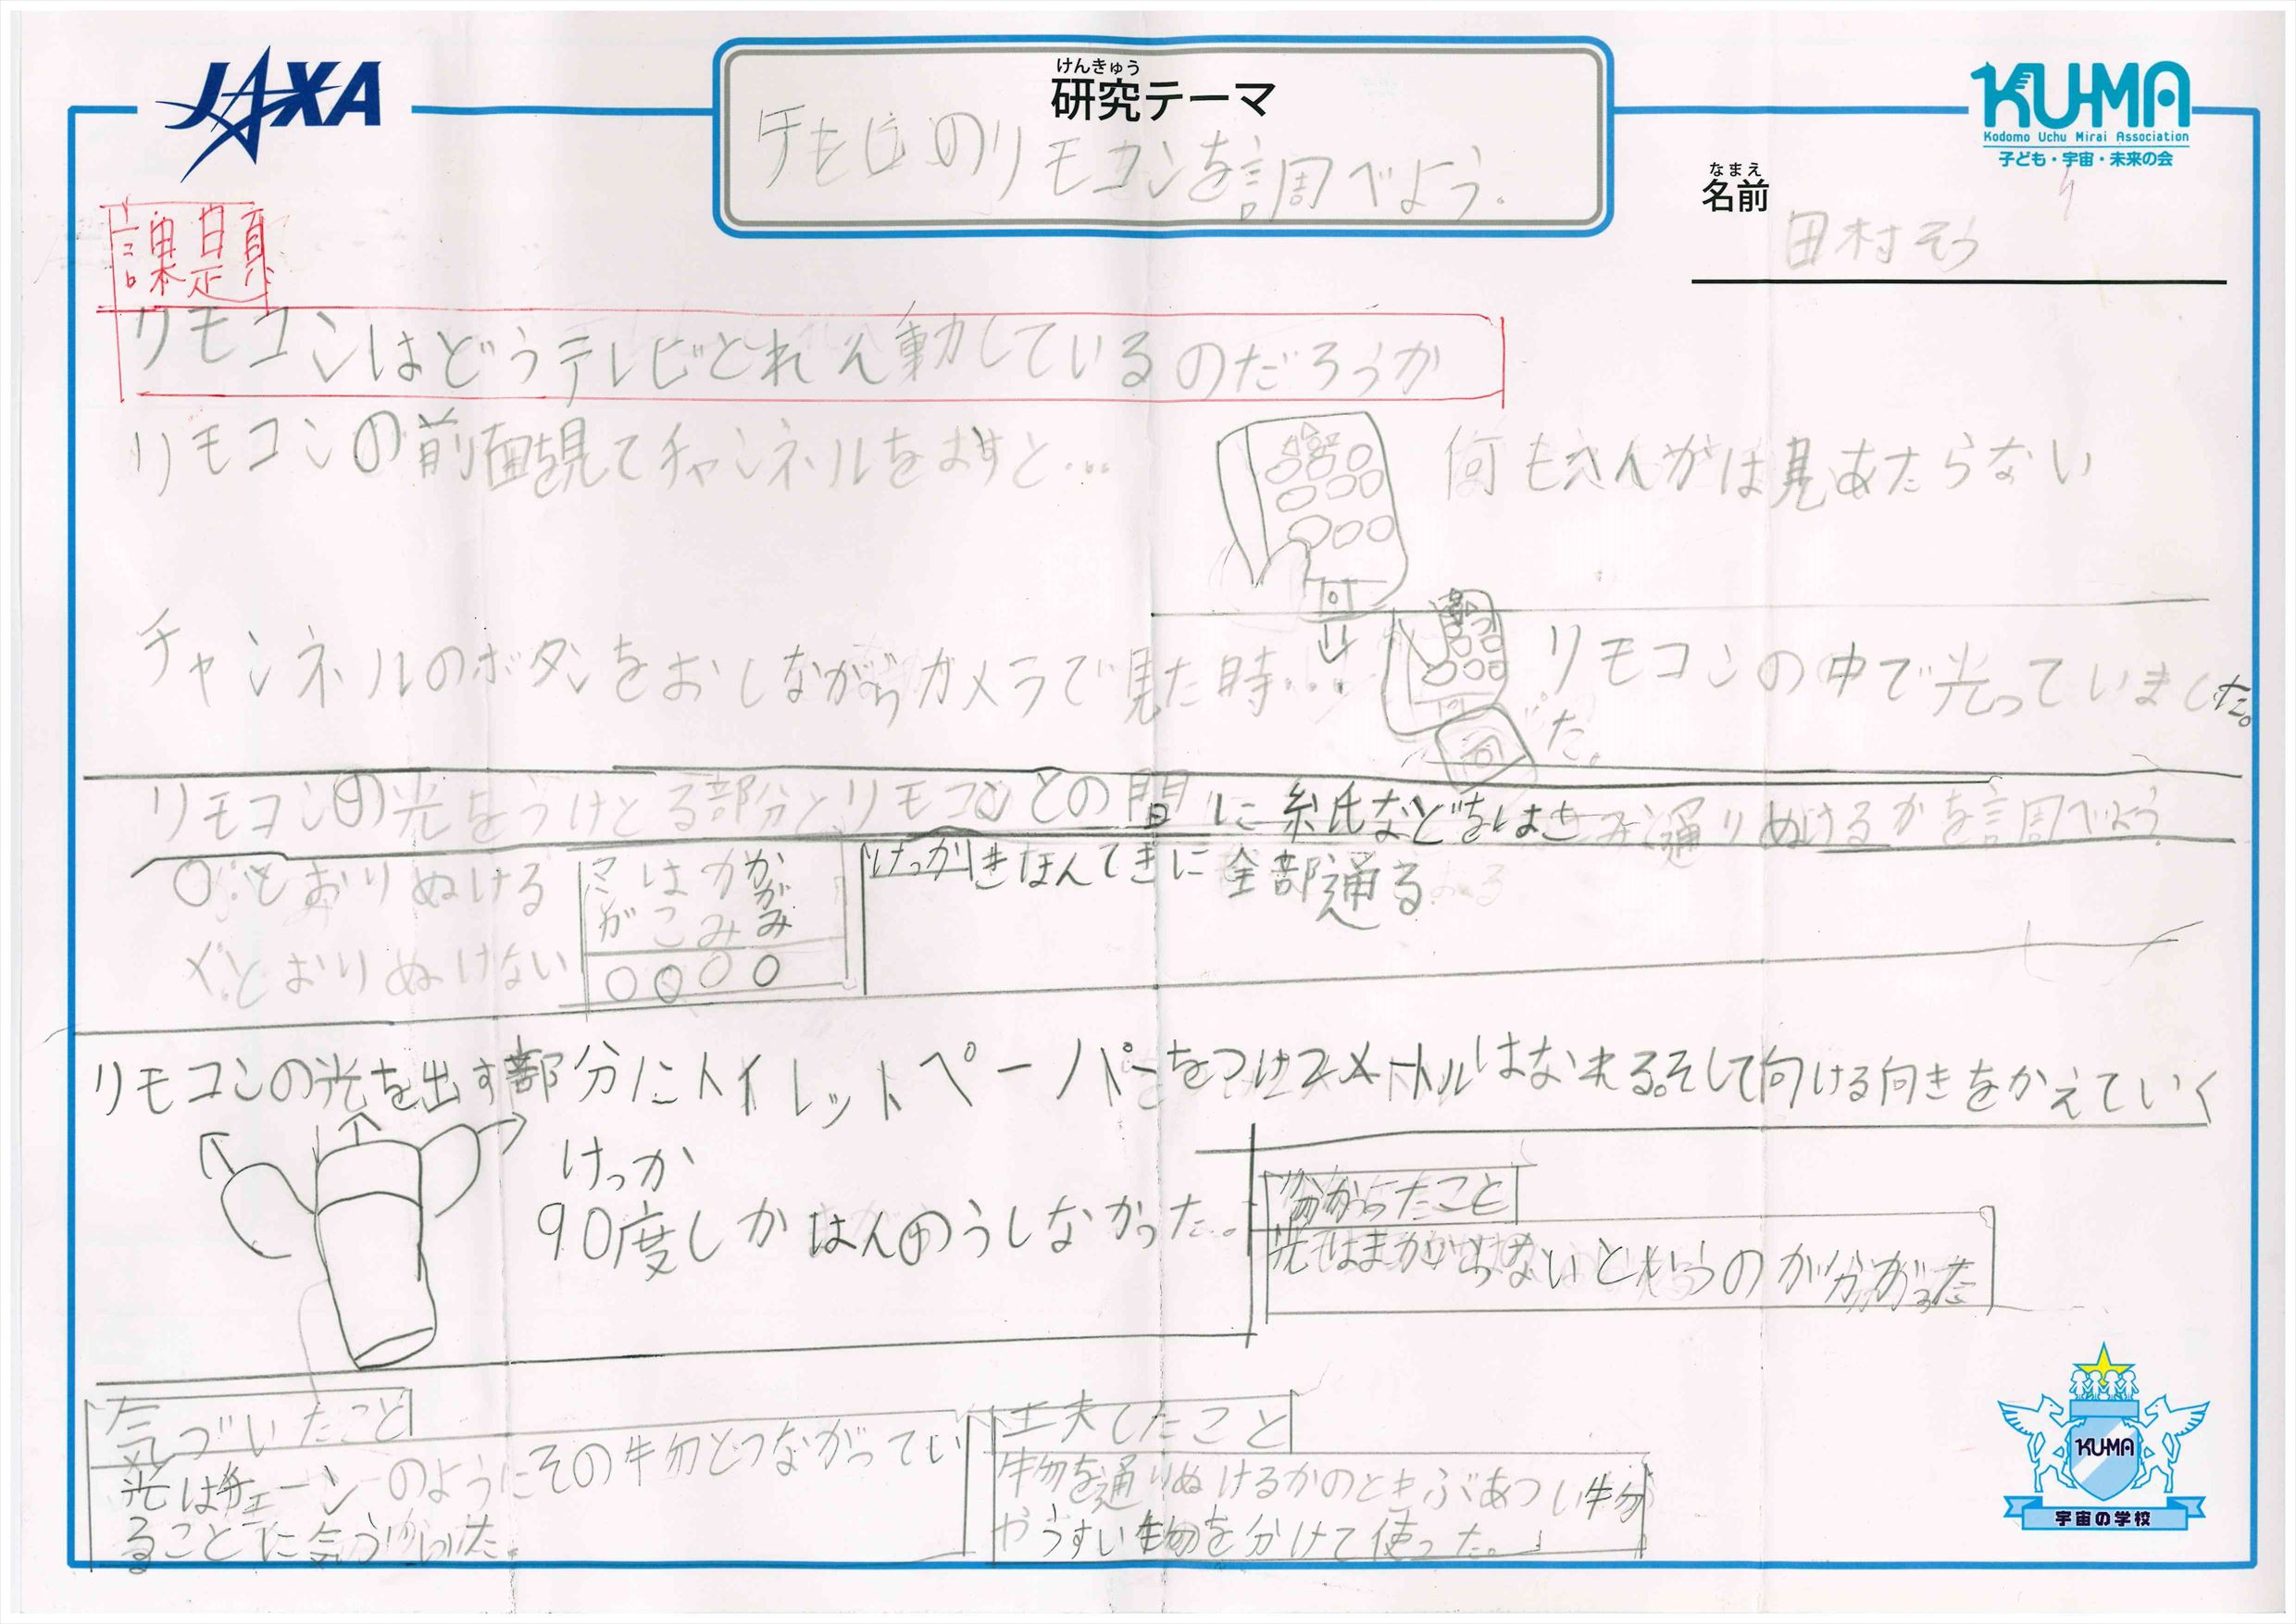 JAXA
けんきゅう
研究テーマ
テレビのリモコンを調べよう.
KUMA
Kodomo Uchu Mirai Association
子ども・宇宙・未来の会
なまえ
名前
田村そう
課題
リモコンはどうテレビとれん動しているのだろうか
リモコンの前面を見てチャンネルをおすと...
何もへんかは見あたらない
チャンネルのボタンをおしながらカメラで見た時....
リモコンの中で光っていました。
た。
リモコンの光をうけとる部分とリモコンとの間に紙などをはさみ通りぬけるかを調べよう
○:とおりぬける
×:とおりぬけない
はこ
かがみ
○○○○
けっか きほんてきに全部通る
リモコンの光を出す部分にトイレットペーパーをつけ2メートルはなれる。そして向ける向きをかえていく
けっか
90度しかはんのうしなかった。
分かったこと
光はまがらないというのが分かった
気づいたこと
光はチェーンのようにその物とつながってい
ることに気づいた.
工夫したこと
物を通りぬけるかのときぶあつい物
やうすい物を分けて使った。
KUMA
宇宙の学校